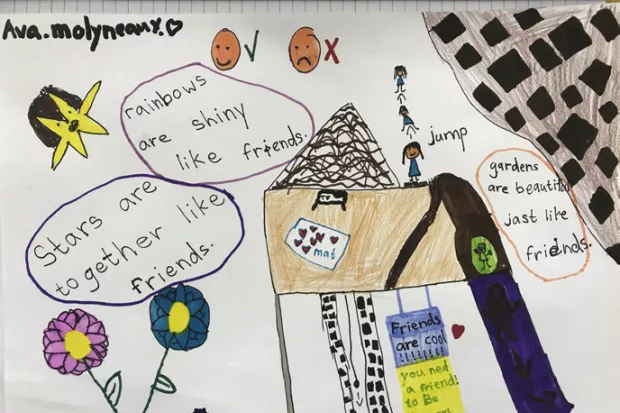 Ava.molyneaux.
rainbows
are shiny
like friends.
jump
gardens
are beautiful
jast like
friednds.
Stars are
together like
friends.
mat
Friends
are cool
!!!!!!!!
you need
a friend!
to Be